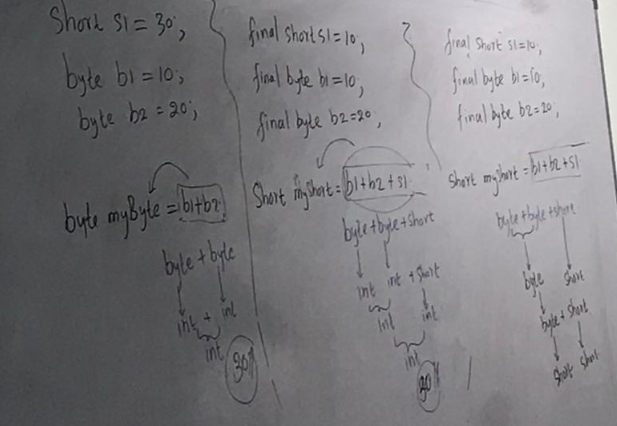 Short s1 = 30;
byte b1 = 10;
byte b2 = 20;
byte myByte = b1+b2
byte + byte
int + int
int
30
final short s1=10;
final byte b1=10;
final byte b2=20,
Short myShort = b1+b2+s1
byte + byte + short
int int + short
int int
int
30
final short s1=10,
final byte b1=10,
final byte b2=20,
Short myShort = b1+b2+s1
byte + byte + short
byte short
byte + short
short short